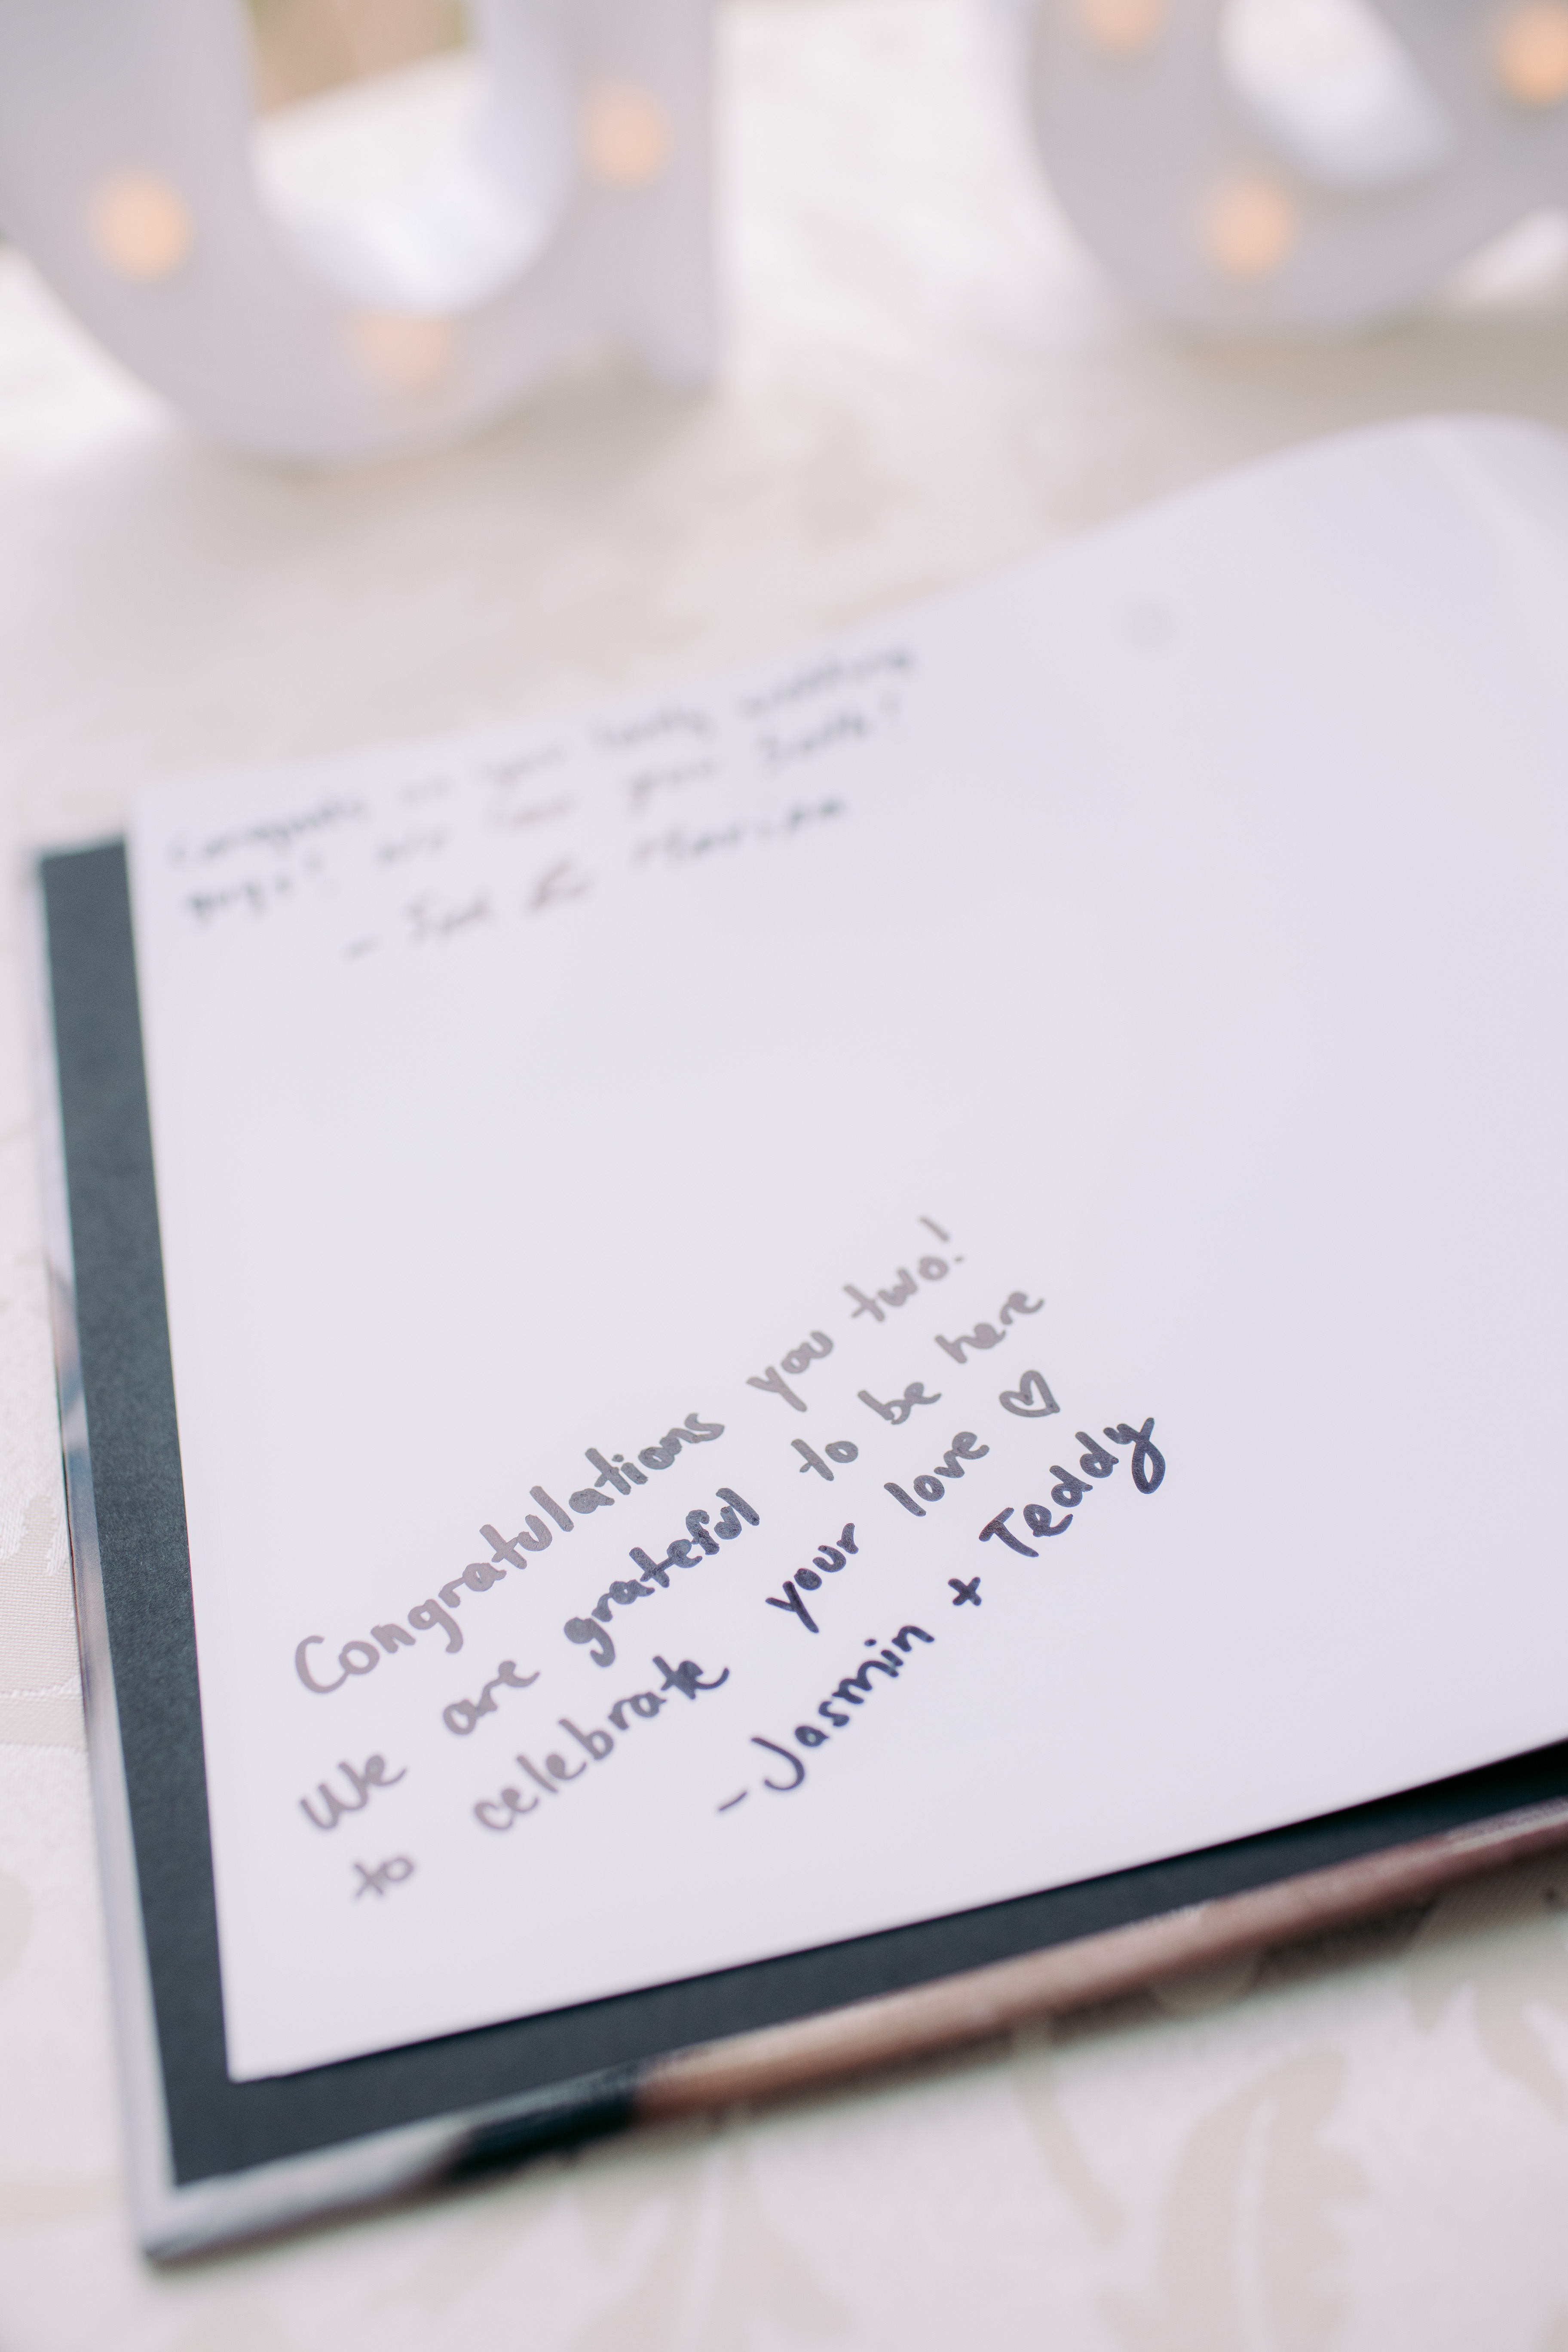 Congrats on your lovely wedding
guys! We love you both!
Congratulations you two!
We are grateful to be here
to celebrate your love ♡
-Jasmin + Teddy